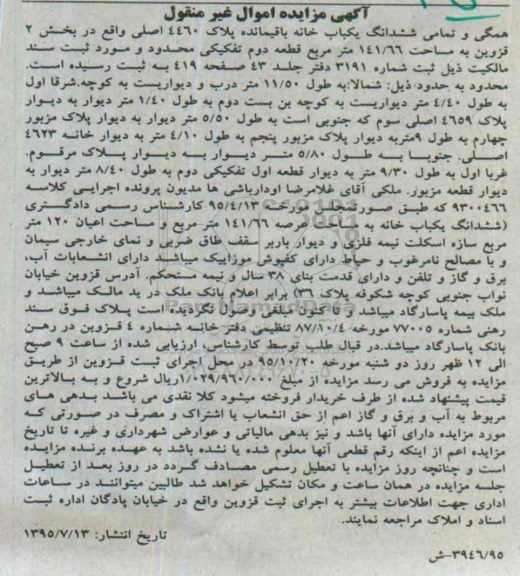 آگهی مزایده اموال غیر منقول
همگی و تمامی ششدانگ یکباب خانه باقیمانده پلاک ۴۴۶۰ اصلی واقع در بخش ۲
قزوین به مساحت ۱۴۱/۶۶ متر مربع قطعه دوم تفکیکی محدود و مورد ثبت سند
مالکیت ذیل ثبت شماره ۳۱۹۱ دفتر جلد ۴۳ صفحه ۴۱۹ به ثبت رسیده است.
محدود به حدود ذیل: شمالا:به طول ۱۱/۵۰ متر درب و دیواریست به کوچه.شرقا اول
به طول ۴/۴۰ متر دیواریست به کوچه بن بست دوم به طول ۱/۴۰ متر دیوار به دیوار
پلاک ۴۶۵۹ اصلی سوم که جنوبی است به طول ۵/۵۰ متر دیوار به دیوار پلاک مزبور
چهارم به طول ۹متربه دیوار پلاک مزبور پنجم به طول ۴/۱۰ متر به دیوار خانه ۴۶۲۳
اصلی. جنوبا به طول ۵/۸۰ متر دیوار به دیوار پلاک مرقوم.
غربا اول به طول ۹/۳۰ متر به دیوار قطعه اول تفکیکی دوم به طول ۸/۴۰ متر دیوار به
دیوار قطعه مزبور. ملکی آقای غلامرضا اودارباشی ها مدیون پرونده اجرایی کلاسه
۹۳۰۰۴۶۶ که طبق صورتجلسه مورخه ۹۵/۴/۱۳ کارشناس رسمی دادگستری
(ششدانگ یکباب خانه به مساحت عرصه ۱۴۱/۶۶ متر مربع و مساحت اعیان ۱۲۰ متر
مربع سازه اسکلت نیمه فلزی و دیوار باربر سقف طاق ضربی و نمای خارجی سیمان
و با مصالح نامرغوب و حیاط دارای کفپوش موزاییک میباشد دارای انشعابات آب،
برق و گاز و تلفن و دارای قدمت بنای ۳۸ سال و نیمه مستحکم. آدرس قزوین خیابان
نواب جنوبی کوچه شکوفه پلاک ۳۶) برابر اعلام بانک ملک در ید مالک میباشد و
ملک بیمه پاسارگاد میباشد و تاکنون مبلغی وصول نگردیده است پلاک فوق سند
رهنی شماره ۷۷۰۰۵ مورخه ۸۷/۱۰/۴ تنظیمی دفتر خانه شماره ۴ قزوین در رهن
بانک پاسارگاد میباشد.در قبال طلب توسط کارشناس، ارزیابی شده از ساعت ۹ صبح
الی ۱۲ ظهر روز دو شنبه مورخه ۹۵/۱۰/۲۰ در محل اجرای ثبت قزوین از طریق
مزایده به فروش می رسد مزایده از مبلغ ۱/۰۲۹/۹۶۰/۰۰۰ریال شروع و به بالاترین
قیمت پیشنهاد شده از طرف خریدار فروخته میشود کلا نقدی می باشد بدهی های
مربوط به آب و برق و گاز اعم از حق انشعاب یا اشتراک و مصرف در صورتی که
مورد مزایده دارای آنها باشد و نیز بدهی مالیاتی و عوارض شهرداری و غیره تا تاریخ
مزایده اعم از اینکه رقم قطعی آنها معلوم شده یا نشده باشد به عهده برنده مزایده
است و چنانچه روز مزایده با تعطیل رسمی مصادف گردد در روز بعد از تعطیل
جلسه مزایده در همان ساعت و مکان تشکیل خواهد شد طالبین میتوانند در ساعات
اداری جهت اطلاعات بیشتر به اجرای ثبت قزوین واقع در خیابان پادگان اداره ثبت
اسناد و املاک مراجعه نمایند.
تاریخ انتشار: ۱۳۹۵/۷/۱۳
۳۹۴۶/۹۵-ش